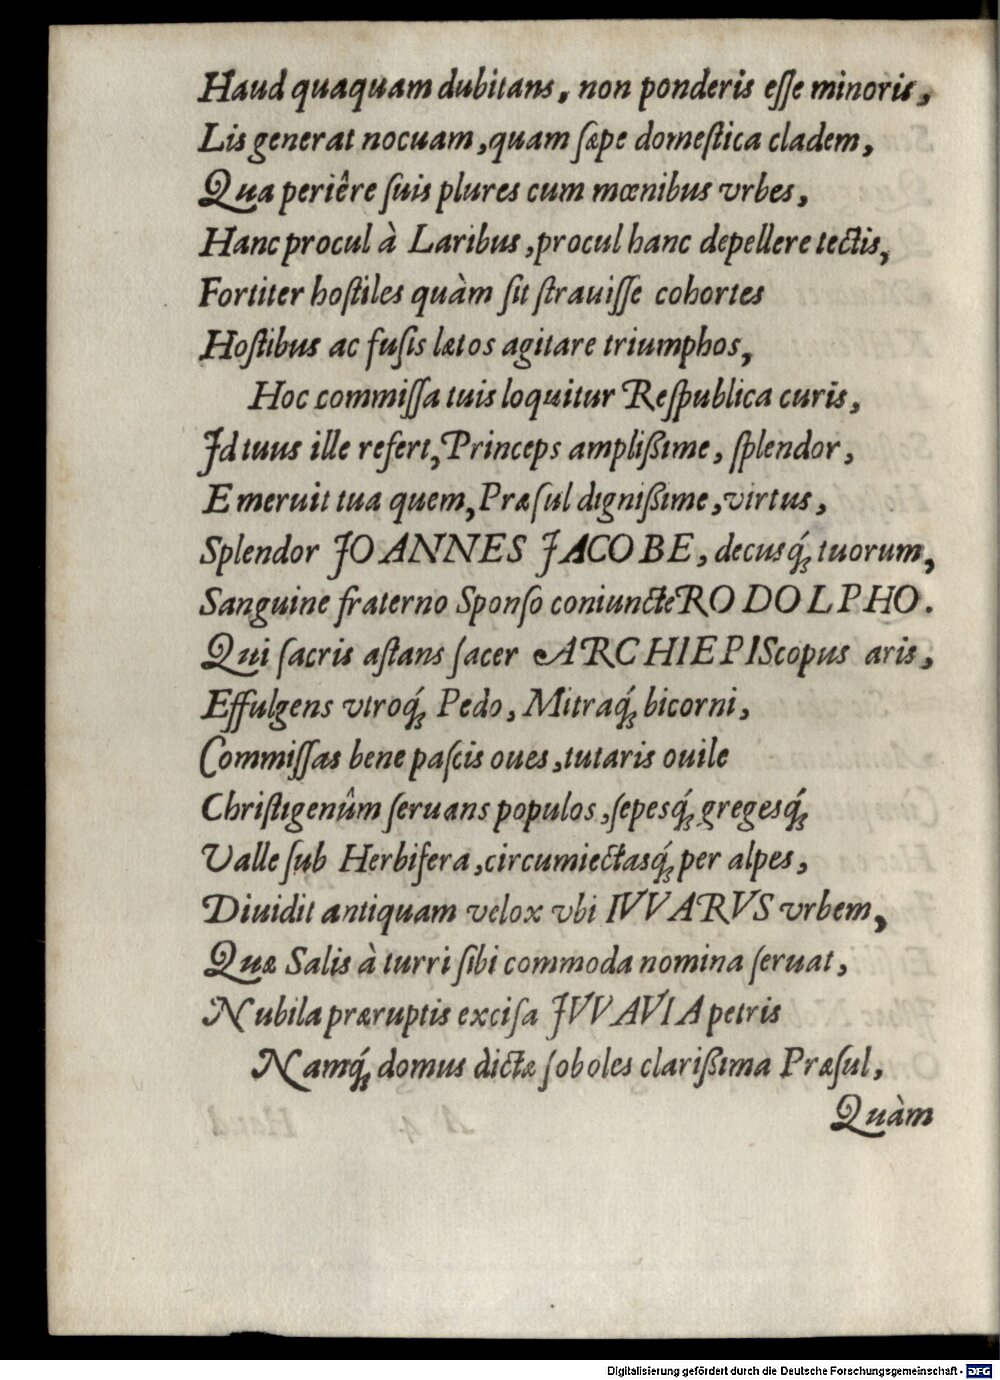 Haud quaquam dubitans, non ponderis eſſe minoris,
Lis generat nocuam, quam ſæpe domeſtica cladem,
Qua periêre ſuis plures cum mœnibus vrbes,
Hanc procul à Laribus, procul hanc depellere tectis,
Fortiter hoſtiles quàm ſit ſtrauiſſe cohortes
Hoſtibus ac fuſis lætos agitare triumphos,
Hoc commiſſa tuis loquitur Reſpublica curis,
Id tuus ille refert, Princeps ampliſsime, ſplendor,
Emeruit tua quem, Præſul digniſsime, virtus,
Splendor JOANNES JACOBE, decusq́; tuorum,
Sanguine fraterno Sponſo coniuncte RODOLPHO.
Qui ſacris aſtans ſacer ARCHIEPIScopus aris,
Effulgens vtroq́; Pedo, Mitraq́; bicorni,
Commiſſas bene paſcis oues, tutaris ouile
Chriſtigenûm ſeruans populos, ſepesq́; gregesq́;
Valle ſub Herbifera, circumiectasq́; per alpes,
Diuidit antiquam velox vbi IVVARVS vrbem,
Quæ Salis à turri ſibi commoda nomina ſeruat,
Nubila præruptis exciſa JVVAVIA petris
Namq́; domus dictæ ſoboles clariſsima Præſul,
Quàm
Digitalisierung gefördert durch die Deutsche Forschungsgemeinschaft - DFG